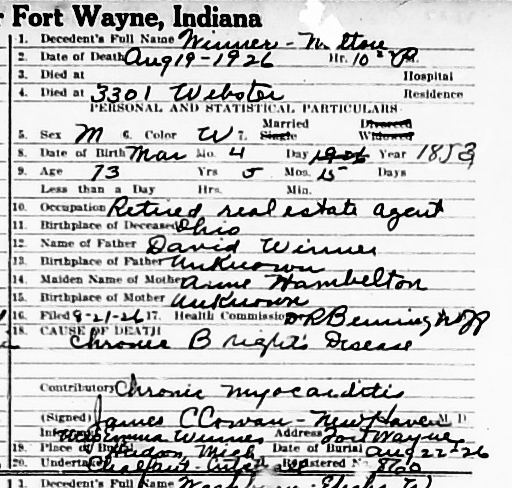 r Fort Wayne, Indiana
1. Decedent's Full Name Winner - Milton
2. Date of Death Aug 19-1926 Hr. 10 P.M.
3. Died at Hospital
4. Died at 3301 Webster Residence
PERSONAL AND STATISTICAL PARTICULARS
Married Divorced
5. Sex M 6. Color W 7. Single Widowed
8. Date of Birth Mar Mo. 4 Day Year 1853
9. Age 73 Yrs 5 Mos. 15 Days
Less than a Day Hrs. Min.
10. Occupation Retired real estate agent
11. Birthplace of Deceased Ohio
12. Name of Father David Winner
13. Birthplace of Father Unknown
14. Maiden Name of Mother Anne Hambelton
15. Birthplace of Mother Unknown
16. Filed 8-21-26 17. Health Commissioner
18. CAUSE OF DEATH
Chronic Bright's Disease
Contributory Chronic myocarditis
(Signed) James C Cowan - New Haven M. D.
Emma Winner Address Fort Wayne
19. Place of Hudson, Mich Date of Burial Aug 22-26
20. Undertaker Registered No. 860
1. Decedent's Full Name